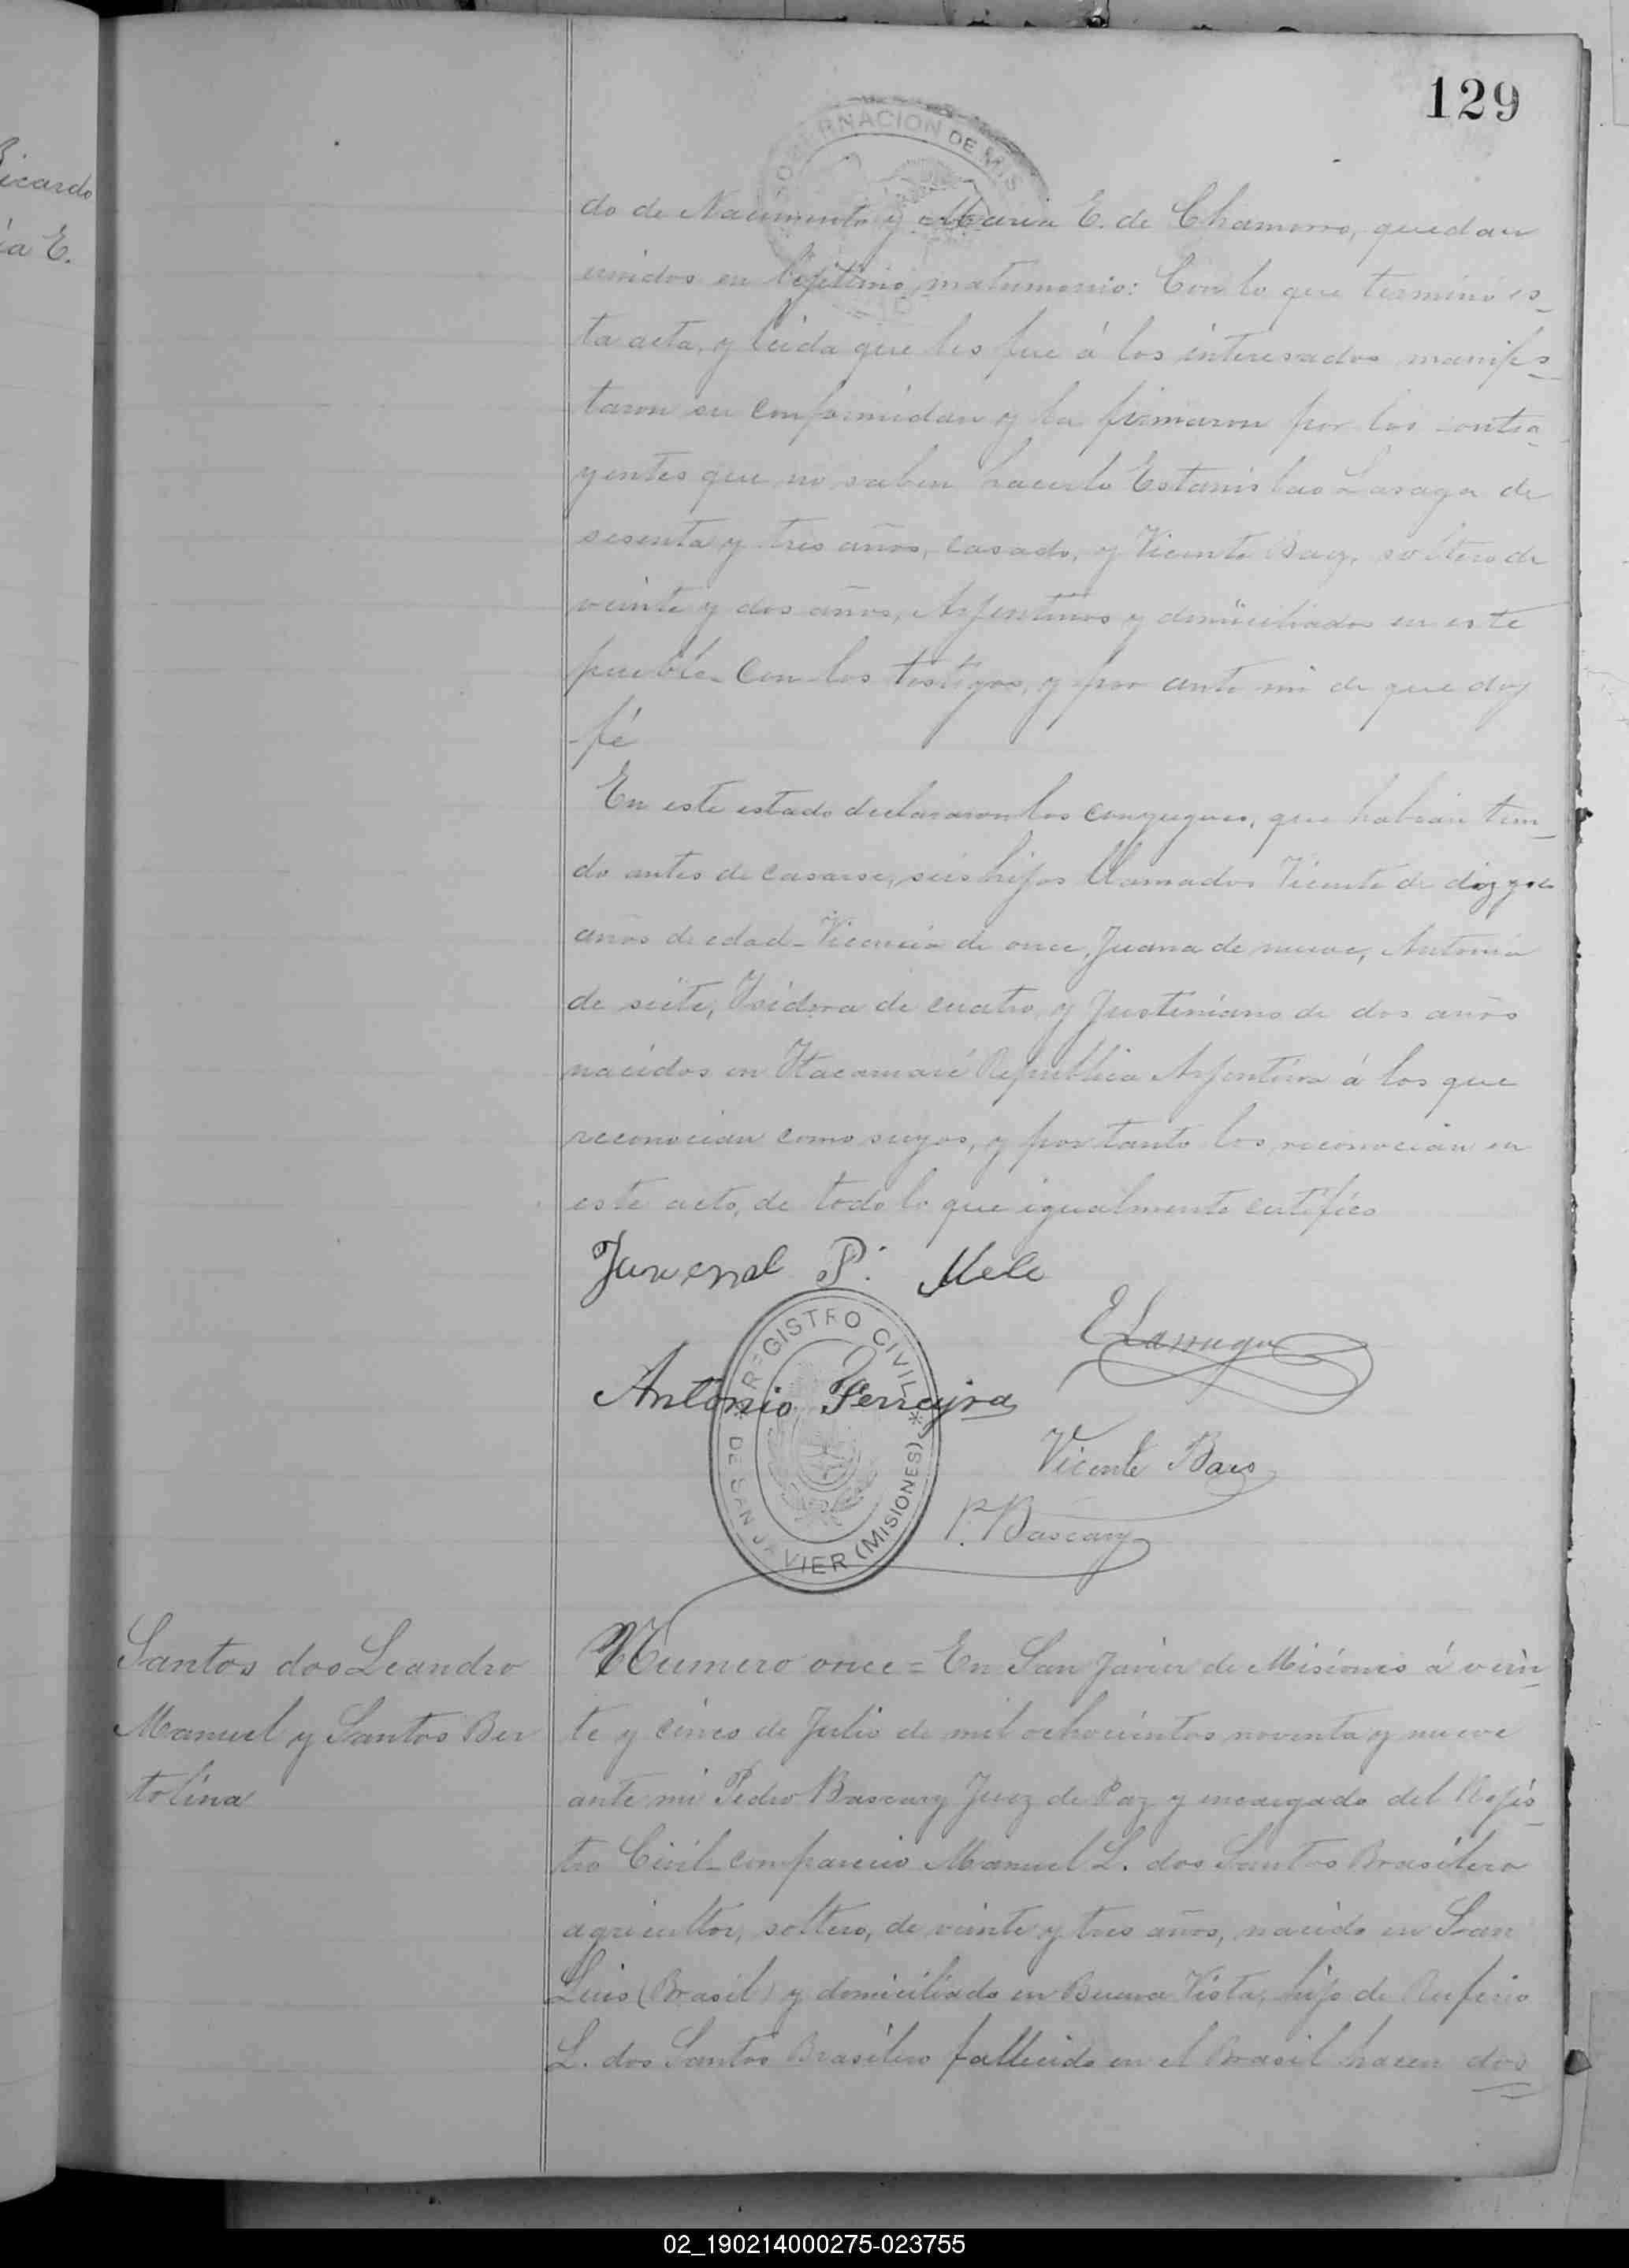 129
GOBERNACION DE MIS
icardo
ia E.
do de Nacimento y Maria E. de Chamorro, quedan
unidos en lejitimo matrimonio: Con lo que terminó es-
ta acta, y leida que les fue á los interesados manifes-
taron su conformidad y la firmaron por los contra-
yentes que no saben hacerlo Estanislao Lasaga de
sesenta y tres años, casado, y Vicente Baez, soltero de
veinte y dos años, Arjentinos y domiciliados en este
pueblo con los testigos, y por ante mi de que doy
fé
En este estado declararon los conyugues, que habian teni-
do antes de casarse, seis hijos llamados Vicente de
años de edad - Vicencia de once, Juana de nueve, Antonia
de siete, Isidora de cuatro, y Justiniano de dos años
nacidos en Itacaruaré Republica Arjentina á los que
reconocian como suyos, y por tanto los reconocian en
este acto, de todo lo que igualmente certifico
Juvenal P. Mele
E Larraga
Antonio Ferreyra
Vicente Baes
P. Bascary
REGISTRO CIVIL
DE SAN JAVIER (MISIONES)
Santos dos Leandro
Manuel y Santos Ber
tolina
Numero once = En San Javier de Misiones á vein-
te y cinco de Julio de mil ochocientos noventa y nueve
ante mi Pedro Bascary Juez de Paz y encargado del Rejis-
tro Civil - comparecio Manuel L. dos Santos Brasilero
agricultor, soltero, de veinte y tres años, nacido en San
Luis (Brasil) y domiciliado en Buena Vista, hijo de Rufino
L. dos Santos Brasilero fallecido en el Brasil hacen dos
02_190214000275-023755